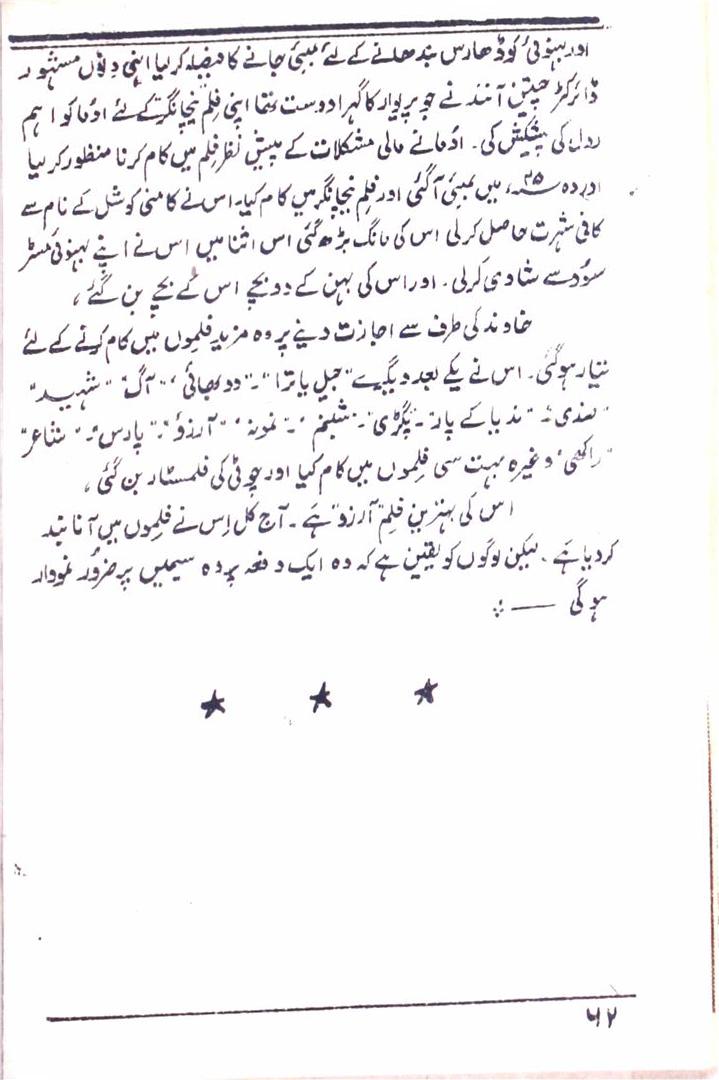 اور بہنوئی کو ڈھارس بندھانے کے لئے بمبئی جانے کا فیصلہ کر لیا انہی دِنوں مشہور
ڈائرکٹر چیتن آنند نے جو پریوار کا گہرا دوست تھا اپنی فِلم "نیچا نگر" کے لئے اوُما کو اہم
رول کی پیشکش کی۔ اوُما نے مالی مشکلات کے پیش نظر فِلم میں کام کرنا منظور کر لیا
اور وہ ۴۵ء میں بمبئی آ گئی اور فلم نیچا نگر میں کام کیا۔ اس نے کامنی کوشل کے نام سے
کافی شہرت حاصل کر لی اس کی مانگ بڑھ گئی اس اثنا میں اس نے اپنے بہنوئی مسٹر
سوُد سے شادی کر لی۔ اور اس کی بہن کے دو بچے اس کے بچے بن گئے،
خاوند کی طرف سے اجازت دینے پر وہ مزید فلموں میں کام کرنے کے لئے
تیار ہو گئی۔ اس نے یکے بعد دیگرے "جیل یاترا"۔ "دو بھائی"، "آگ" "شہید"
"ندیا کے پار"۔ "پگڑی"۔ "شبنم"۔ "نمونہ" "آرزوُ"۔ "پارس"۔ "شاعر"
"راکھی" وغیرہ بہت سی فِلموں میں کام کیا اور چوٹی کی فلمسٹار بن گئی،
اس کی بہترین فلم "آرزو" ہے۔ آج کل اِس نے فلموں میں آنا بند
کر دیا ہے۔ لیکن لوگوں کو یقین ہے کہ وہ ایک دفعہ پردہ سیمیں پر ضروُر نموُدار
ہو گی ——
۶۲